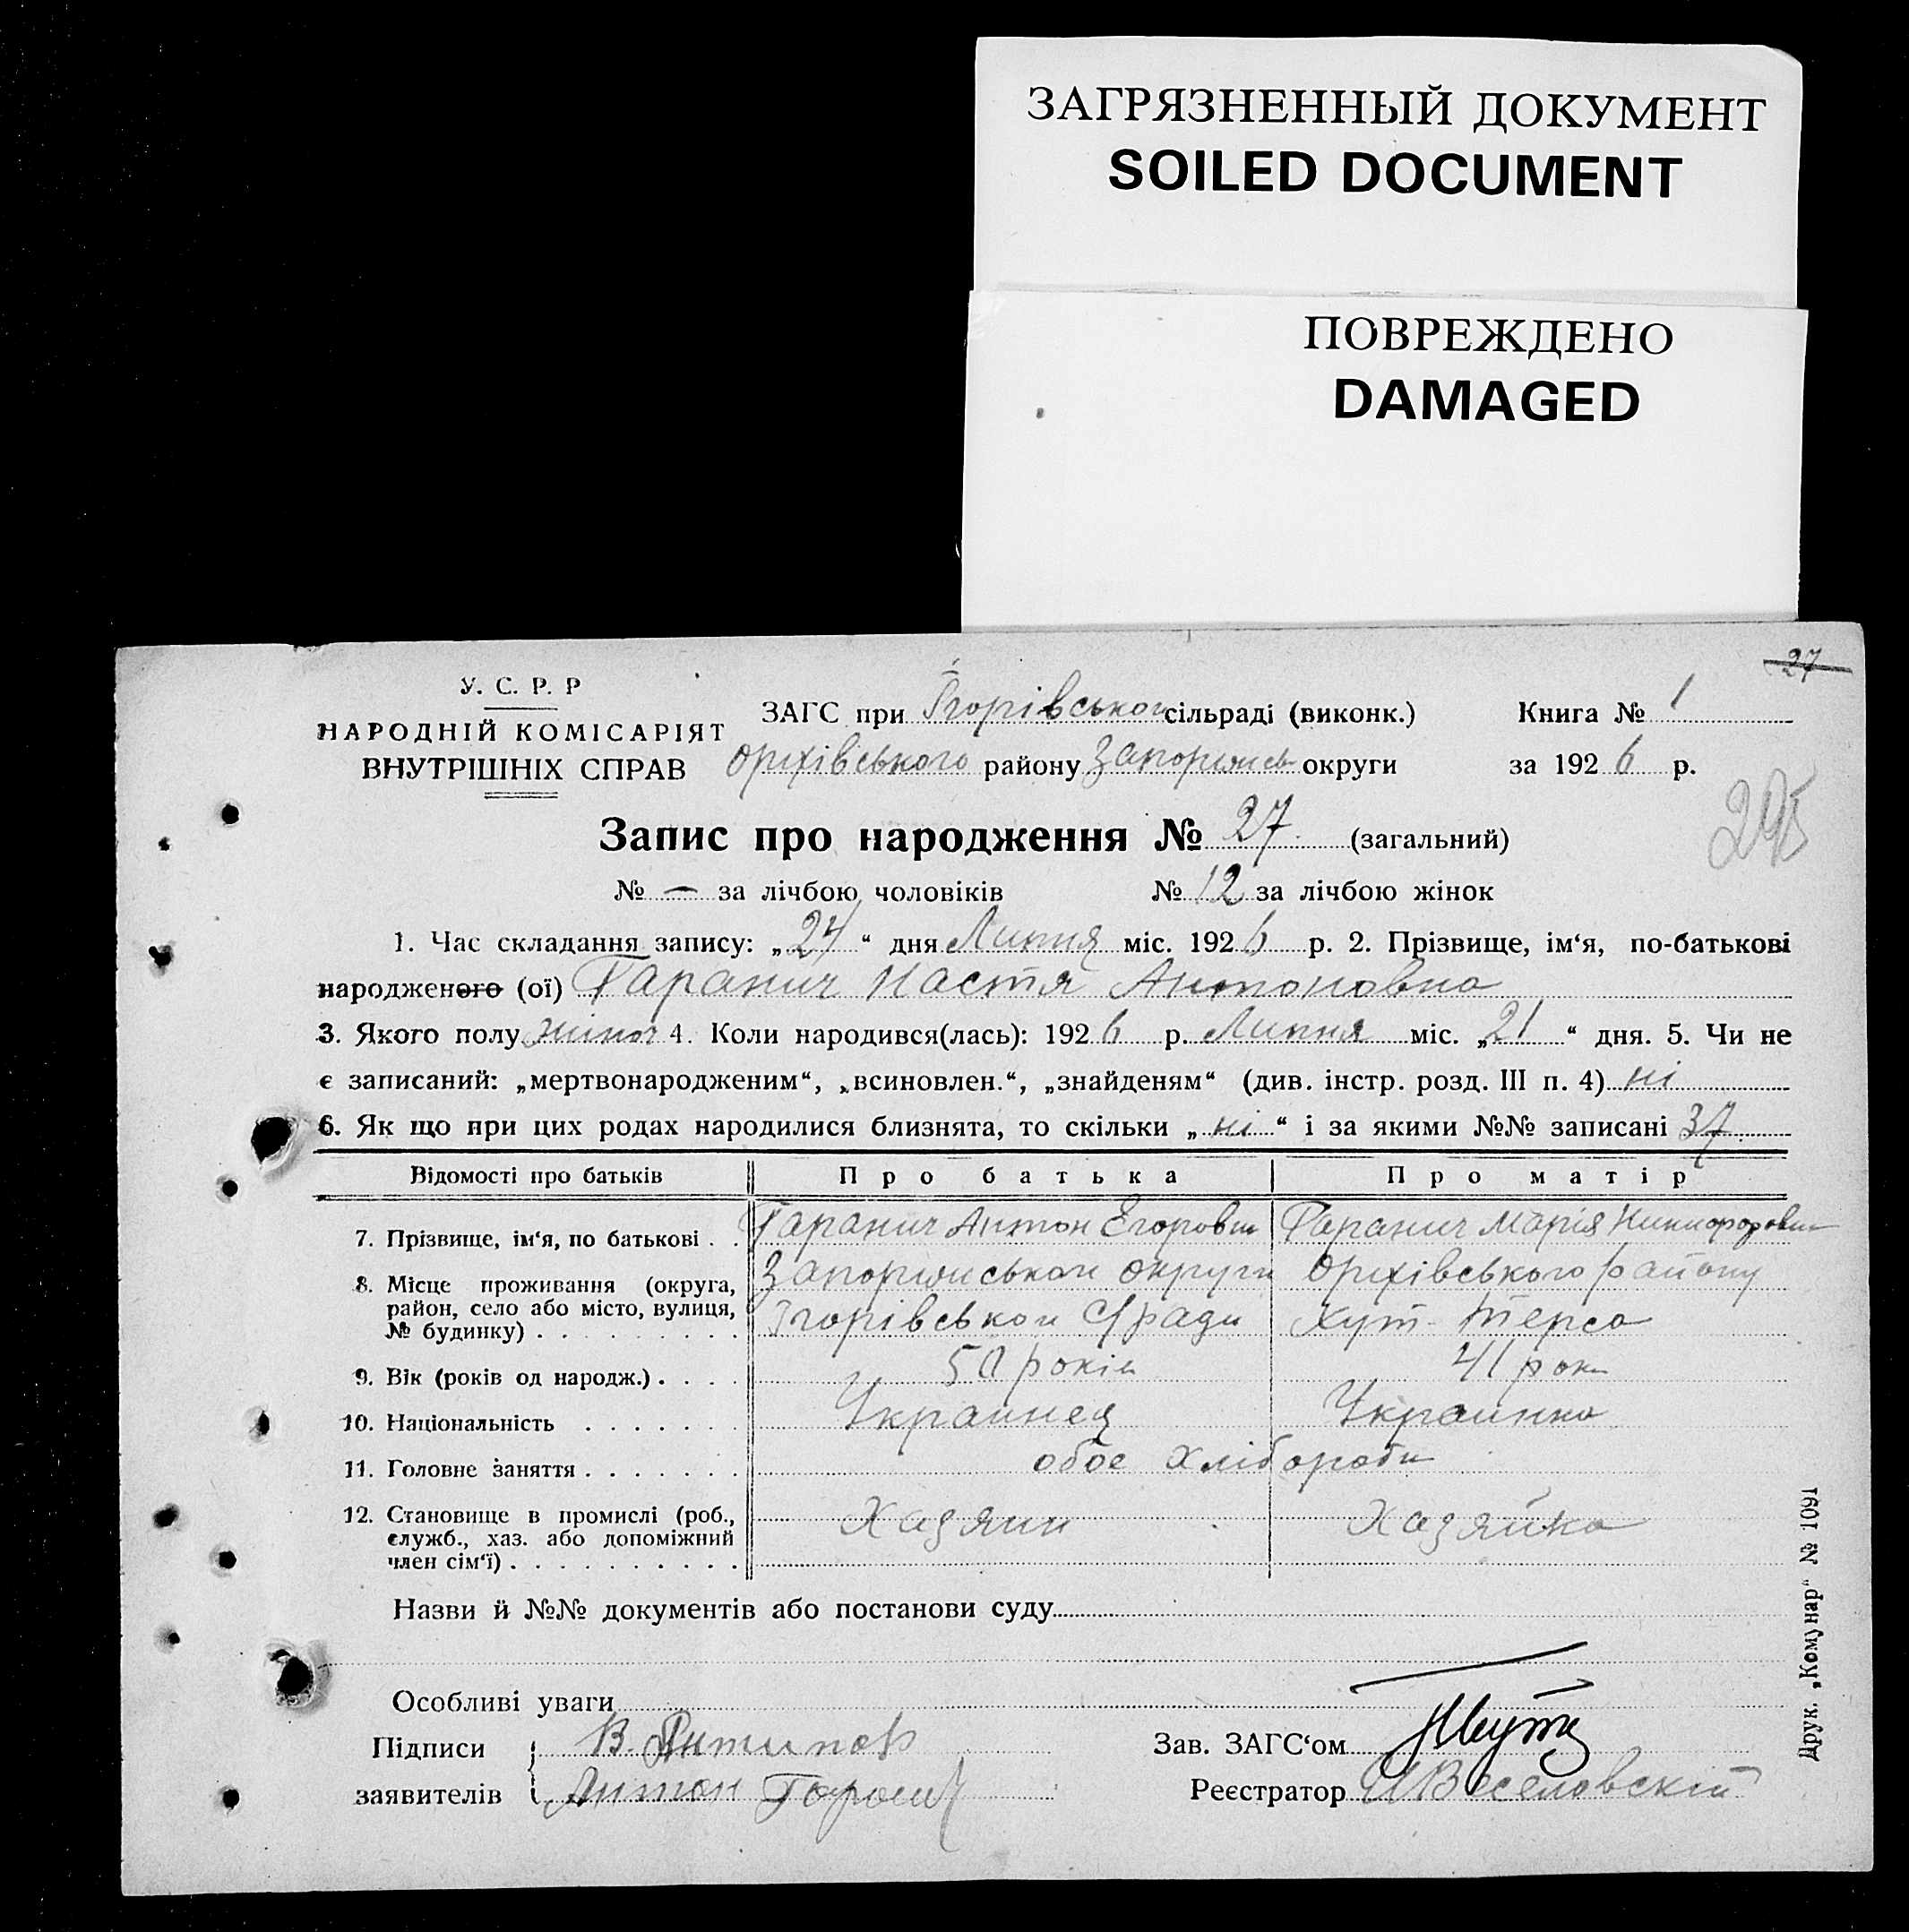 ЗАГРЯЗНЕННЫЙ ДОКУМЕНТ
SOILED DOCUMENT
ПОВРЕЖДЕНО
DAMAGED
27
У. С. Р. Р
НАРОДНІЙ КОМІСАРІЯТ
ВНУТРІШНІХ СПРАВ
ЗАГС при Ігорівськои сільраді (виконк.) Книга № 1
Оріхівського району Запоріжсь округи за 1926 р.
295
Запис про народження № 27 (загальний)
№ — за лічбою чоловіків № 12 за лічбою жінок
1. Час складання запису: „24“ дня Липня міс. 1926 р. 2. Прізвище, ім‘я, по-батькові
народженого (ої) Гаранич Настя Антоновна
3. Якого полу жіноч 4. Коли народився(лась): 1926 р. Липня міс. „21“ дня. 5. Чи не
є записаний: „мертвонародженим“, „всиновлен.“, „знайденям“ (див. інстр. розд. III п. 4) ні
6. Як що при цих родах народилися близнята, то скільки „ні“ і за якими №№ записані 37
Відомості про батьків Про батька Про матір
7. Прізвище, ім‘я, по батькові . . Гаранич Антон Егорович Гаранич Марія Никифоровна
8. Місце проживання (округа, район, село або місто, вулиця, № будинку) . . . . . . . . . Запоріжськои округи Оріхівського району
Ігорівськои С/ради Хут. Терса
9. Вік (років од народж.) . . . . 50 років 41 роки
10. Національність . . . . . . . Украинец Украинка
11. Головне заняття . . . . . . . обое хлібороби
12. Становище в промислі (роб., служб., хаз. або допоміжний член сім‘ї) . . . . . . . . . . Хазяин Хазяйка
Назви й №№ документів або постанови суду
Особливі уваги
Підписи заявителів В. Антипов
Антон Гаранич
Зав. ЗАГС‘ом
Реєстратор Веселовскій
Друк. „Комунар“ № 1091